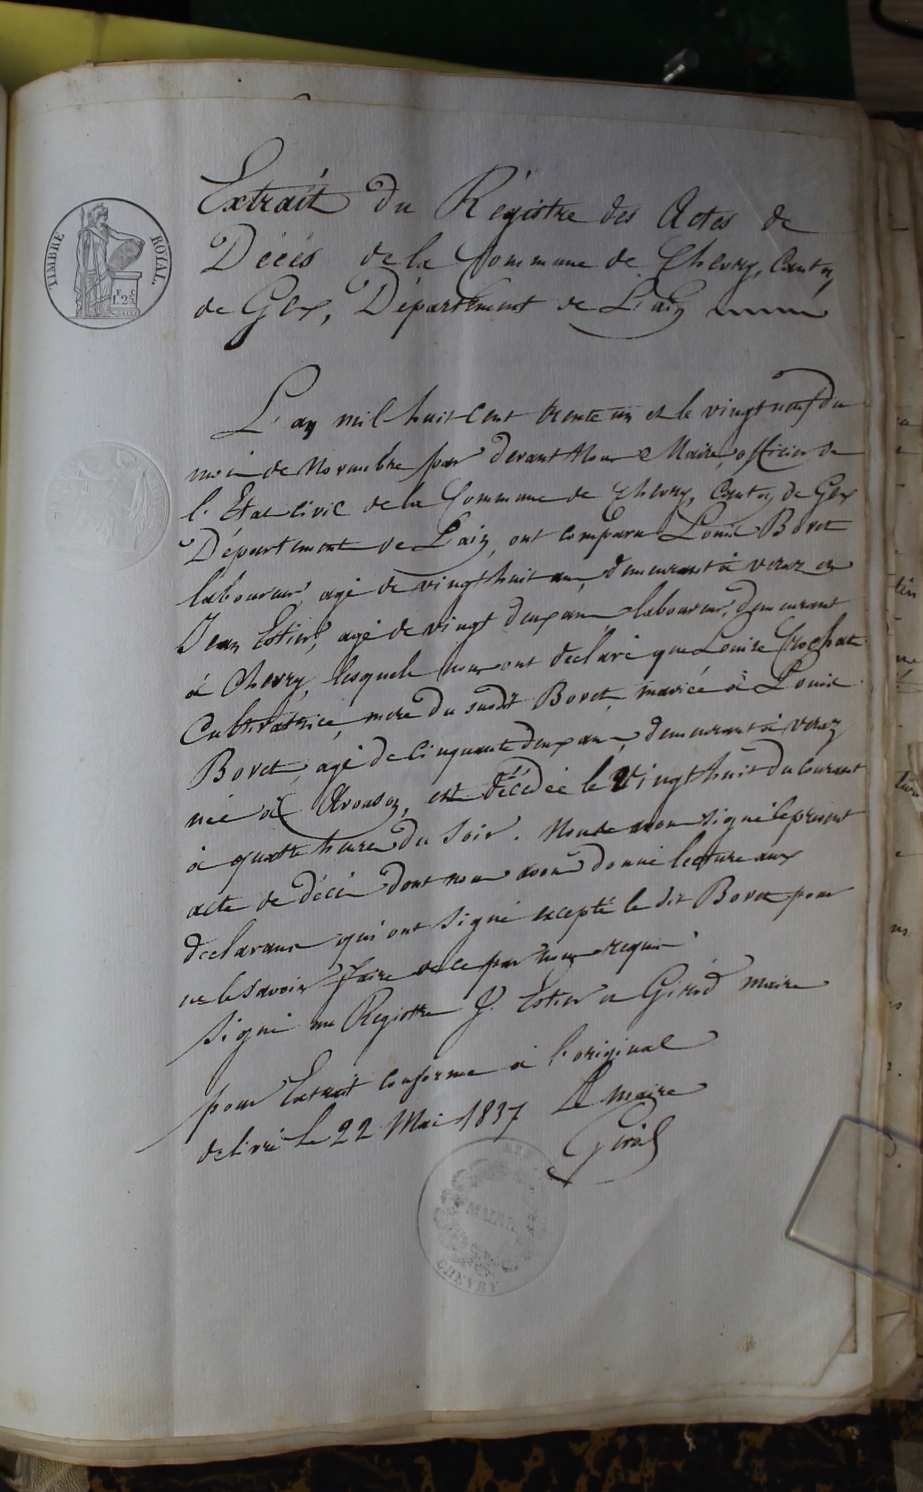 TIMBRE ROYAL.
1F.25
Extrait du Régistre des Actes de
Décés de la Commune de Chevry, Canton
de Gex, Département de L'ain
L'an mil huit Cent trente un et le vingt neuf du
mois de Novembre par devant Nous Maire officier de
l'Etat Civil de la Commune de Chevry, Canton de Gex
Département de L'ain, ont comparu Louis Bovet
laboureur, agé de vingt huit ans, demeurant à veraz et
Jean Estier, agé de vingt deux ans laboureur, demeurant
à Chevry, lesquels nous ont déclaré que Louise Crochat
Cultivatrice, mere du susdit Bovet, mariée à Louis
Bovet, agé de Cinquante deux ans, demeurant à veraz
née à, est Décédée le Vingt huit du Courant
à quatre heures du Soir. Nous avons Signé le présent
acte de décés dont nous avons donné lecture aux
declarans qui ont Signé excepté le dit Bovet pour
ne le Savoir faire de ce par nous requis.
Signé au Registre J. Estier et Girod maire
pour Extrait conforme à l'original
delivré Le 22 Mai 1837 Le maire
Girod
MAIRIE
CHEVRY